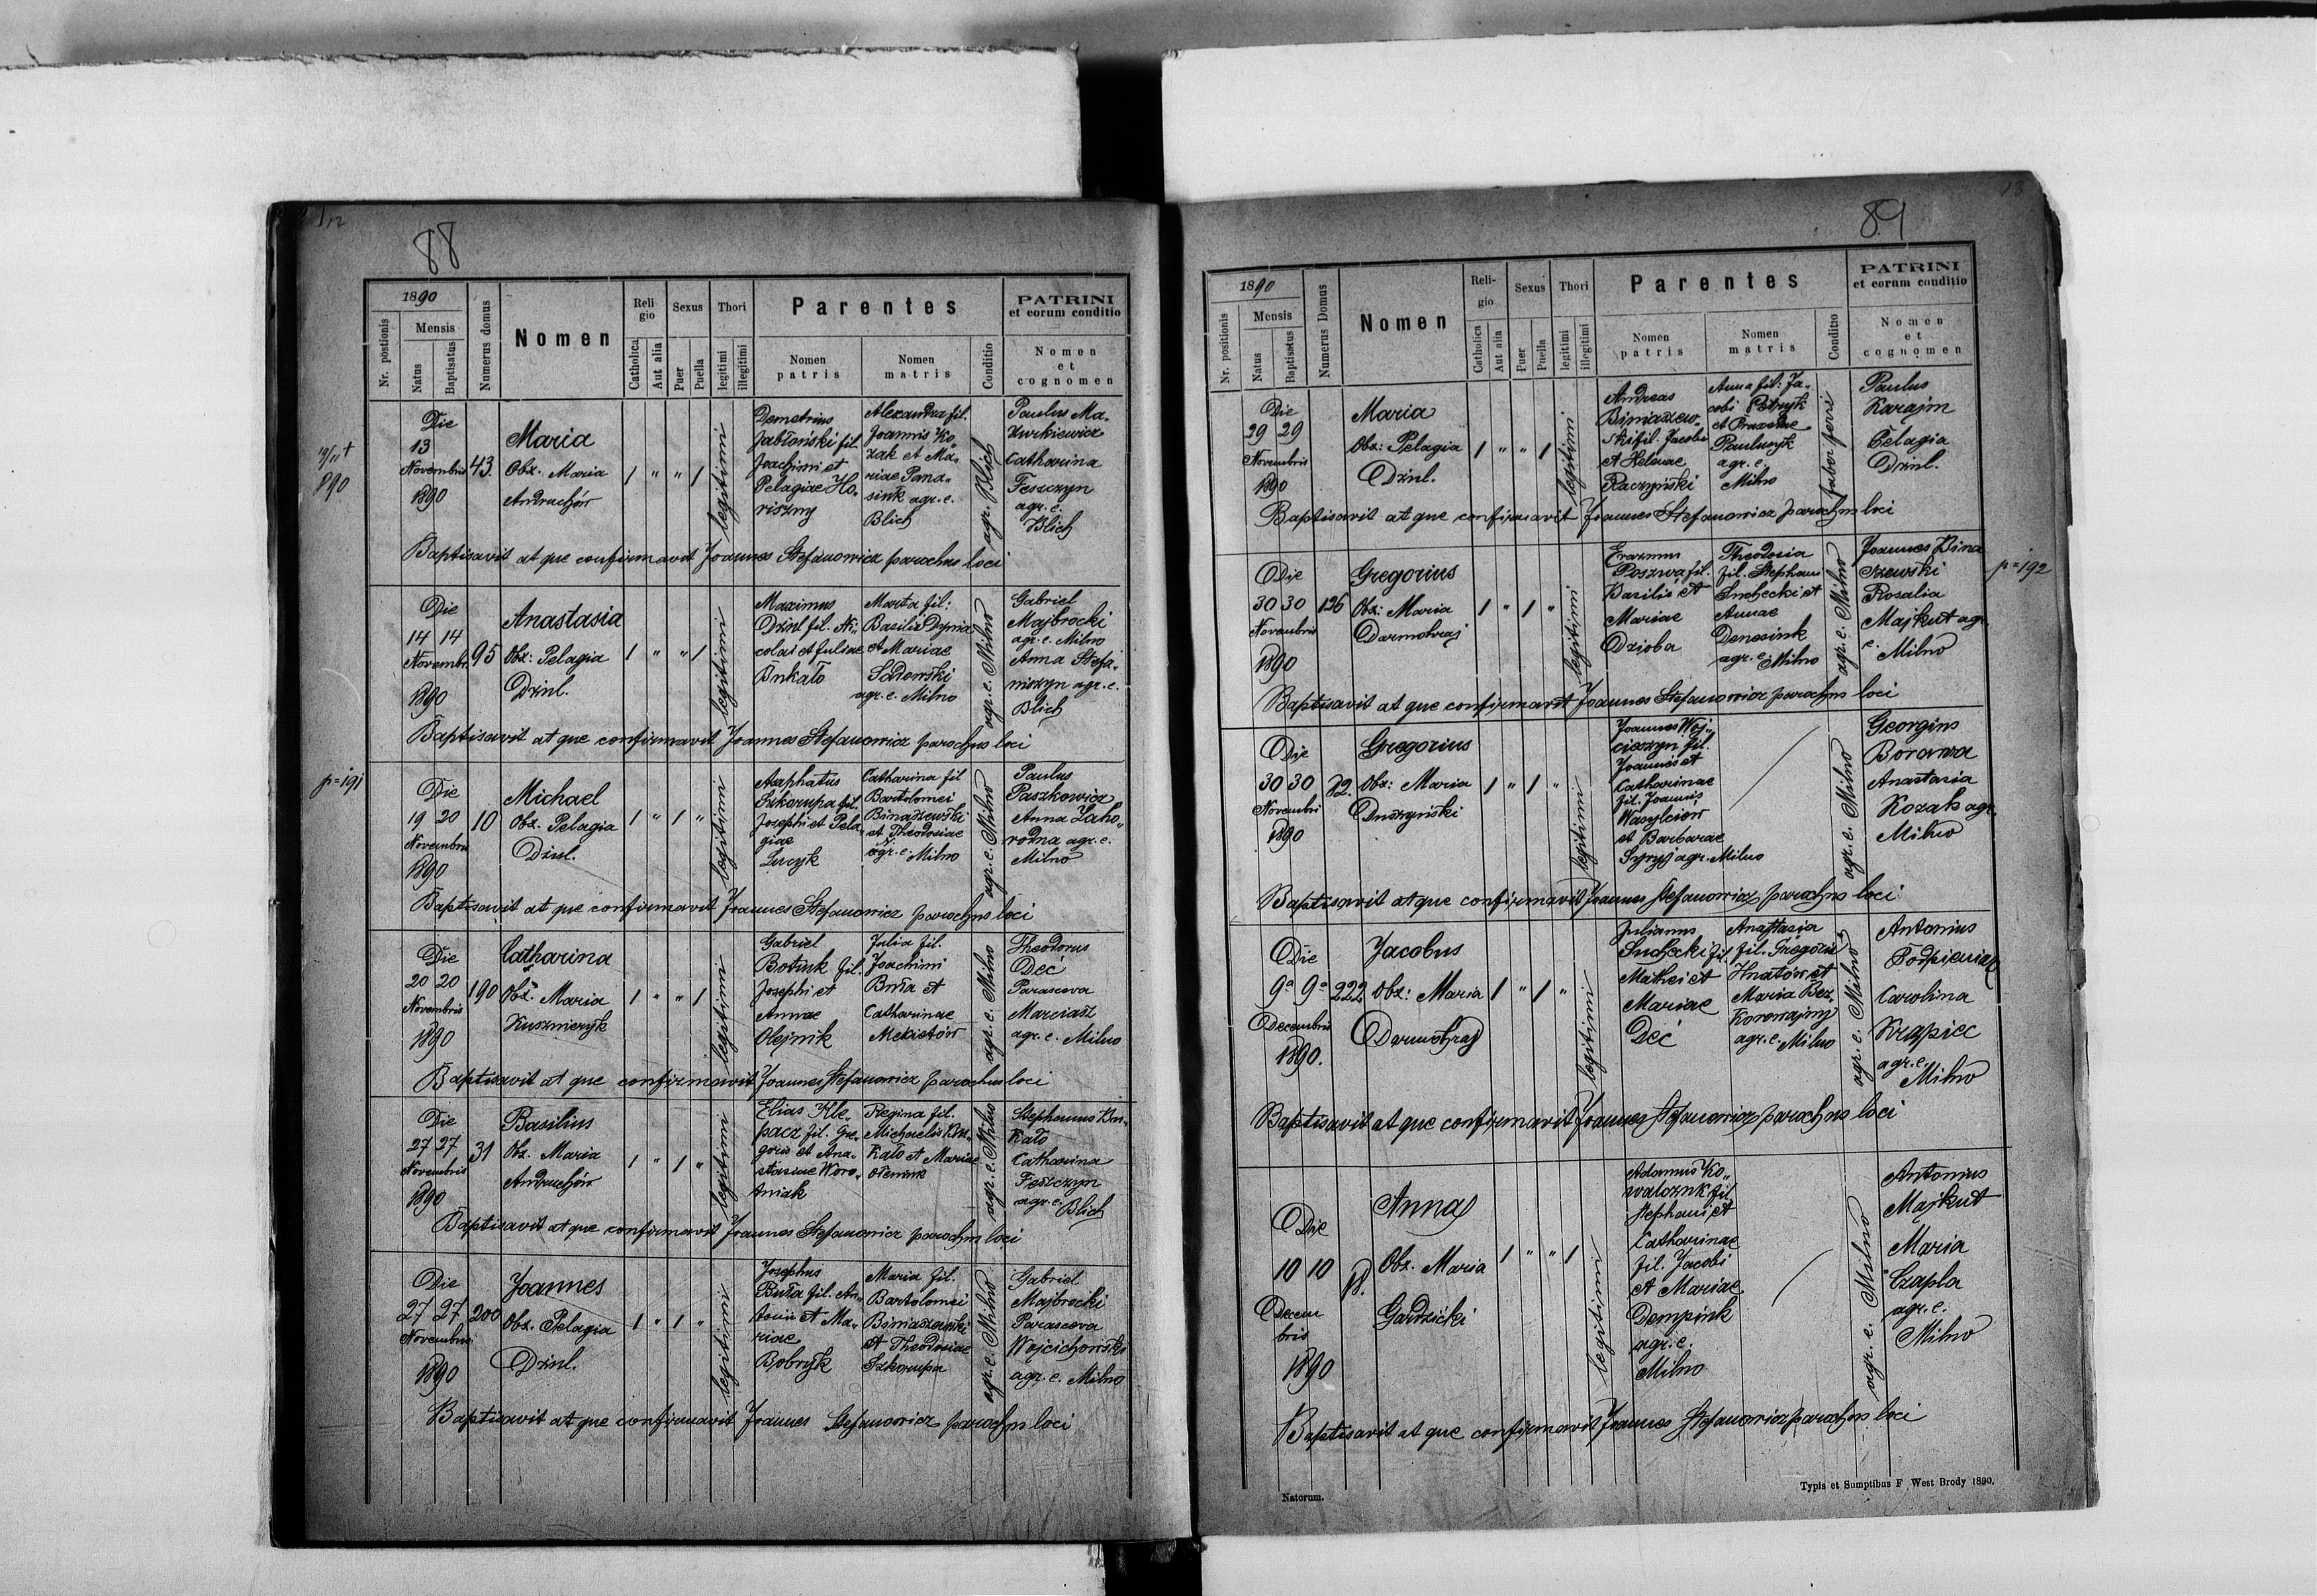 88
1890
Nr. postionis
Mensis
Natus
Baptisatus
Numerus domus
Nomen
Religio
Catholica
Aut alia
Sexus
Puer
Puella
Thori
legitimi
illegitimi
Parentes
Nomen patris
Nomen matris
Conditio
PATRINI
et eorum conditio
Nomen
et
cognomen
890
Die
13
Novembris
1890
43.
Maria
Obz. Maria
Andruchów
1 " " 1
legitimi
Demetrius
Jabłoński fil.
Joachimi et
Pelagiae Ho„
riszny
Alexandra fil.
Joannis Ko„
zak et Ma„
riae Pana„
siuk agr. c.
Blich
agr. Blich
Paulus Ma„
zurkiewicz
Catharina
Feszczyn
agr. c.
Blich
Baptisavit at que confirmavit Joannes Stefanowicz parochus loci
Die
14 14
Novembr.
1890
95
Anastasia
Obz: Pelagia
Dziul.
1 " " 1
legitimi
Maximus
Dziul fil. Ni„
colai et Juliae
Bukało
Marta fil:
Basilii Dynia
et Mariae
Sadowski
agr. c. Milno
agr. c. Milno
Gabriel
Majbrocki
agr. c. Milno
Anna Stefa„
niszyn agr. c.
Blich
Baptisavit at que confirmavit Joannes Stefanowicz parochus loci
p=191
Die
19 20
Novembris
1890
10
Michael
Obz. Pelagia
Dziul.
1 " 1 "
legitimi
Szkorupa fil.
Josephi et Pela„
giae
Catharina fil
Bartolomei
Binaszewski
et Theodosiae
agr. c. Milno
agr. c. Milno
Paulus
Paszkowicz
Anna Zaho„
rodna agr. c.
Milno
Baptisavit at que confirmavit Joannes Stefanowicz parochus loci
Die
20 20
Novembris
1890
190
Catharina
Obz. Maria
Kusznieryk
1 " " 1
legitimi
Gabriel
Botiuk fil.
Josephi et
Annae
Olejnik
Julia fil.
Joachimi
Buła et
Catharinae
agr. c. Milno
Theodorus
Deć
Parasceva
Marciasz
agr. c. Milno
Baptisavit at que confirmavit Joannes Stefanowicz parochus loci
Die
27 27
Novembris
1890
31
Basilius
Obz. Maria
Andruchów
1 " 1 "
legitimi
Elias Kle„
pacz fil. Gre„
gorii et Ana„
stasiae Woro„
Regina fil.
Michaelis Bu„
kało et Mariae
agr. c. Milno
Stephanus Bu„
kało
Catharina
Feszczyn
agr. c. Blich
Baptisavit at que confirmavit Joannes Stefanowicz parochus loci
Die
27 27
Novembris
1890
200
Joannes
Obz. Pelagia
Dziul.
1 " 1 "
legitimi
Josephus
Buła fil. An„
tonii et Ma„
riae
Bobryk
Maria fil.
Bartolomei
Binaszewski
et Theodosiae
Szkorupa
agr. c. Milno
Gabriel
Majbrocki
Parasceva
Wojcichowski
agr. c. Milno
Baptisavit at que confirmavit Joannes Stefanowicz parochus loci
13
89
1890
Nr. positionis
Mensis
Natus
Baptisatus
Numerus Domus
Nomen
Religio
Catholica
Aut alia
Sexus
Puer
Puella
Thori
legitimi
illegitimi
Parentes
Nomen patris
Nomen matris
Conditio
PATRINI
et eorum conditio
Nomen
et
cognomen
Die
29 29
Novembris
1890
Maria
Obz: Pelagia
Dziul.
1 " " 1
legitimi
Andreas
Biniaszew„
ski fil. Jacobi
et Helenae
Raczyński
Anna fil: Ja„
cobi Petryk
et Praxedae
Pauluzyk
agr. c.
Milno
faber ferri
Paulus
Karajm
Pelagia
Dziul.
Baptisavit at que confirmavit Joannes Stefanowicz parochus loci
Die
30 30
Novembris
1890
126
Gregorius
Obz: Maria
Darmohraj
1 " 1 "
legitimi
Erazmus
Poszwa fil.
Basilii et
Mariae
Dzioba
Theodosia
fil. Stephani
Suchecki et
Annae
Denesiuk
agr. c. Milno
agr. c. Milno
Joannes Bina
szewski
Rosalia
Majkut agr.
c. Milno
p=192
Baptisavit at que confirmavit Joannes Stefanowicz parochus loci
Die
30 30
Novembri
1890
82.
Gregorius
Obz: Maria
Duszyński
1 " 1 "
legitimi
Joannes Woj„
cieszyn fil.
Joannes et
Catharinae
fil. Joannis
Wasylciów
et Barbarae
agr. Milno
agr. c. Milno
Georgius
Anastasia
Kozak agr.
Milno
Baptisavit at que confirmavit Joannes Stefanowicz parochus loci
Die
9a 9a
Decembris
1890.
222
Jacobus
Obz: Maria
Darmohraj
1 " 1 "
legitimi
Julianus
Suchecki fil.
Mathei et
Mariae
Deć
Anastasia
fil. Gregorii
Hnatów et
Maria Bez„
Korowajny
agr. c. Milno
agr. c. Milno
Antonius
Carolina
Krąpiec
agr. c.
Milno
Baptisavit at que confirmavit Joannes Stefanowicz parochus loci
Die
10 10
Decem
bris
1890
18.
Anna
Obz. Maria
Gardzicki
1 " " 1
legitimi
Adamus Ko„
walczuk fil.
Stephani et
Catharinae
fil. Jacobi
et Mariae
Dempiuk
agr. c.
Milno
agr. c. Milno
Antonius
Majkut
Maria
Czapla
agr. c.
Milno
Baptisavit at que confirmavit Joannes Stefanowicz parochus loci
Natorum.
Typis et Sumptibus F West Brody 1890.